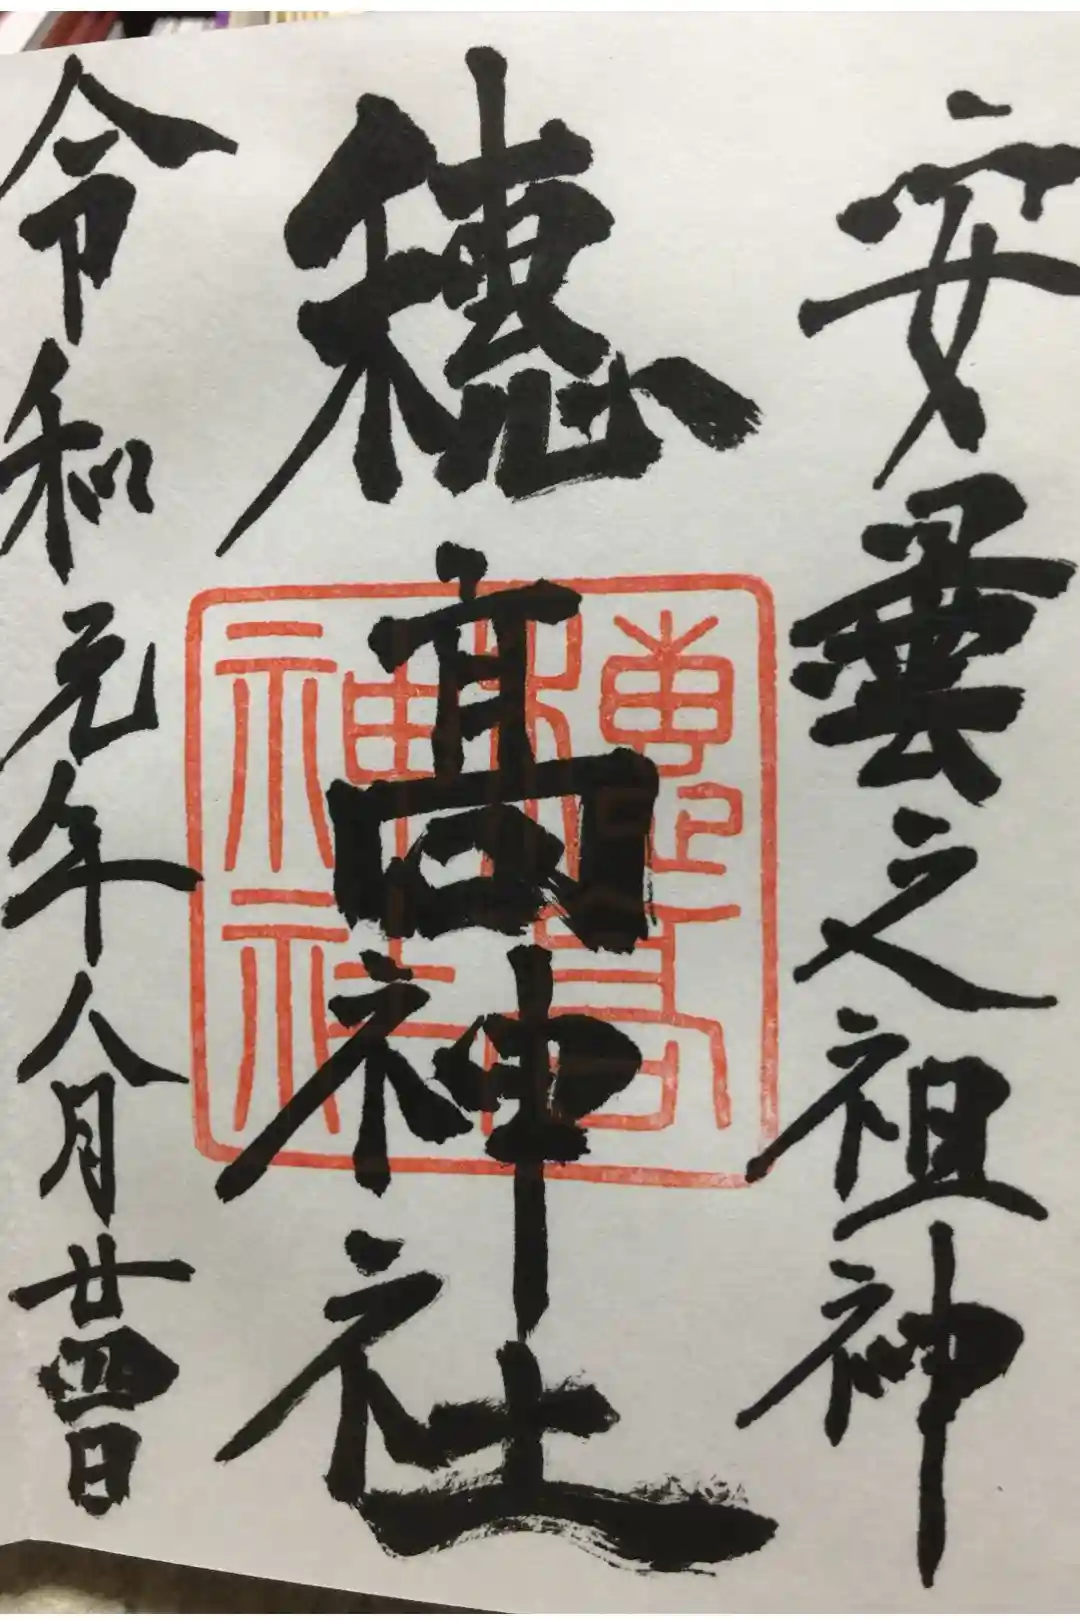 安曇之祖神
穂髙神社
穂髙神社
令和元年八月廿四日